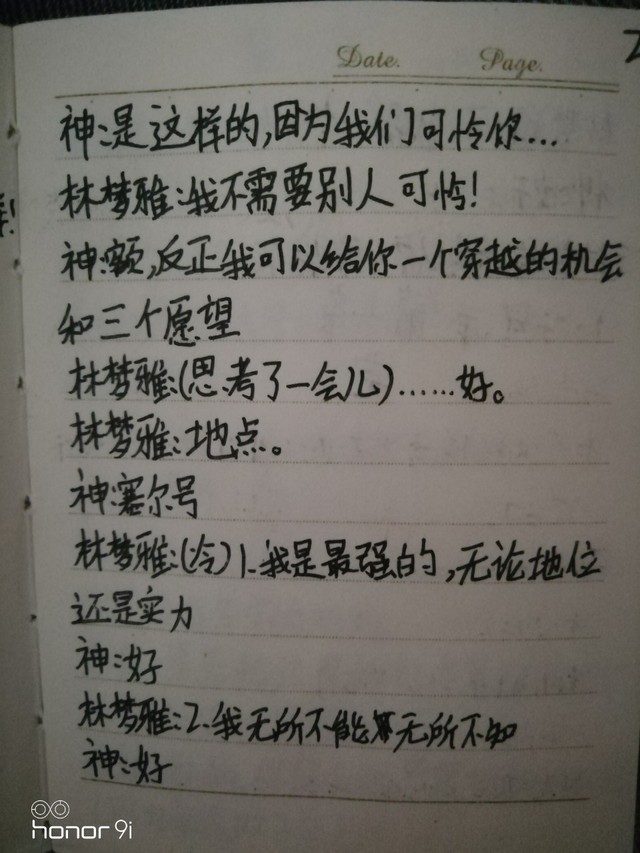 Date. Page.
神:是这样的,因为我们可怜你...
林梦雅:我不需要别人可怜!
神:额,反正我可以给你一个穿越的机会
和三个愿望
林梦雅:(思考了一会儿)……好。
林梦雅:地点。
神:塞尔号
林梦雅:(冷)1.我是最强的,无论地位
还是实力
神:好
林梦雅:2.我无所不能无所不知
神:好
honor 9i